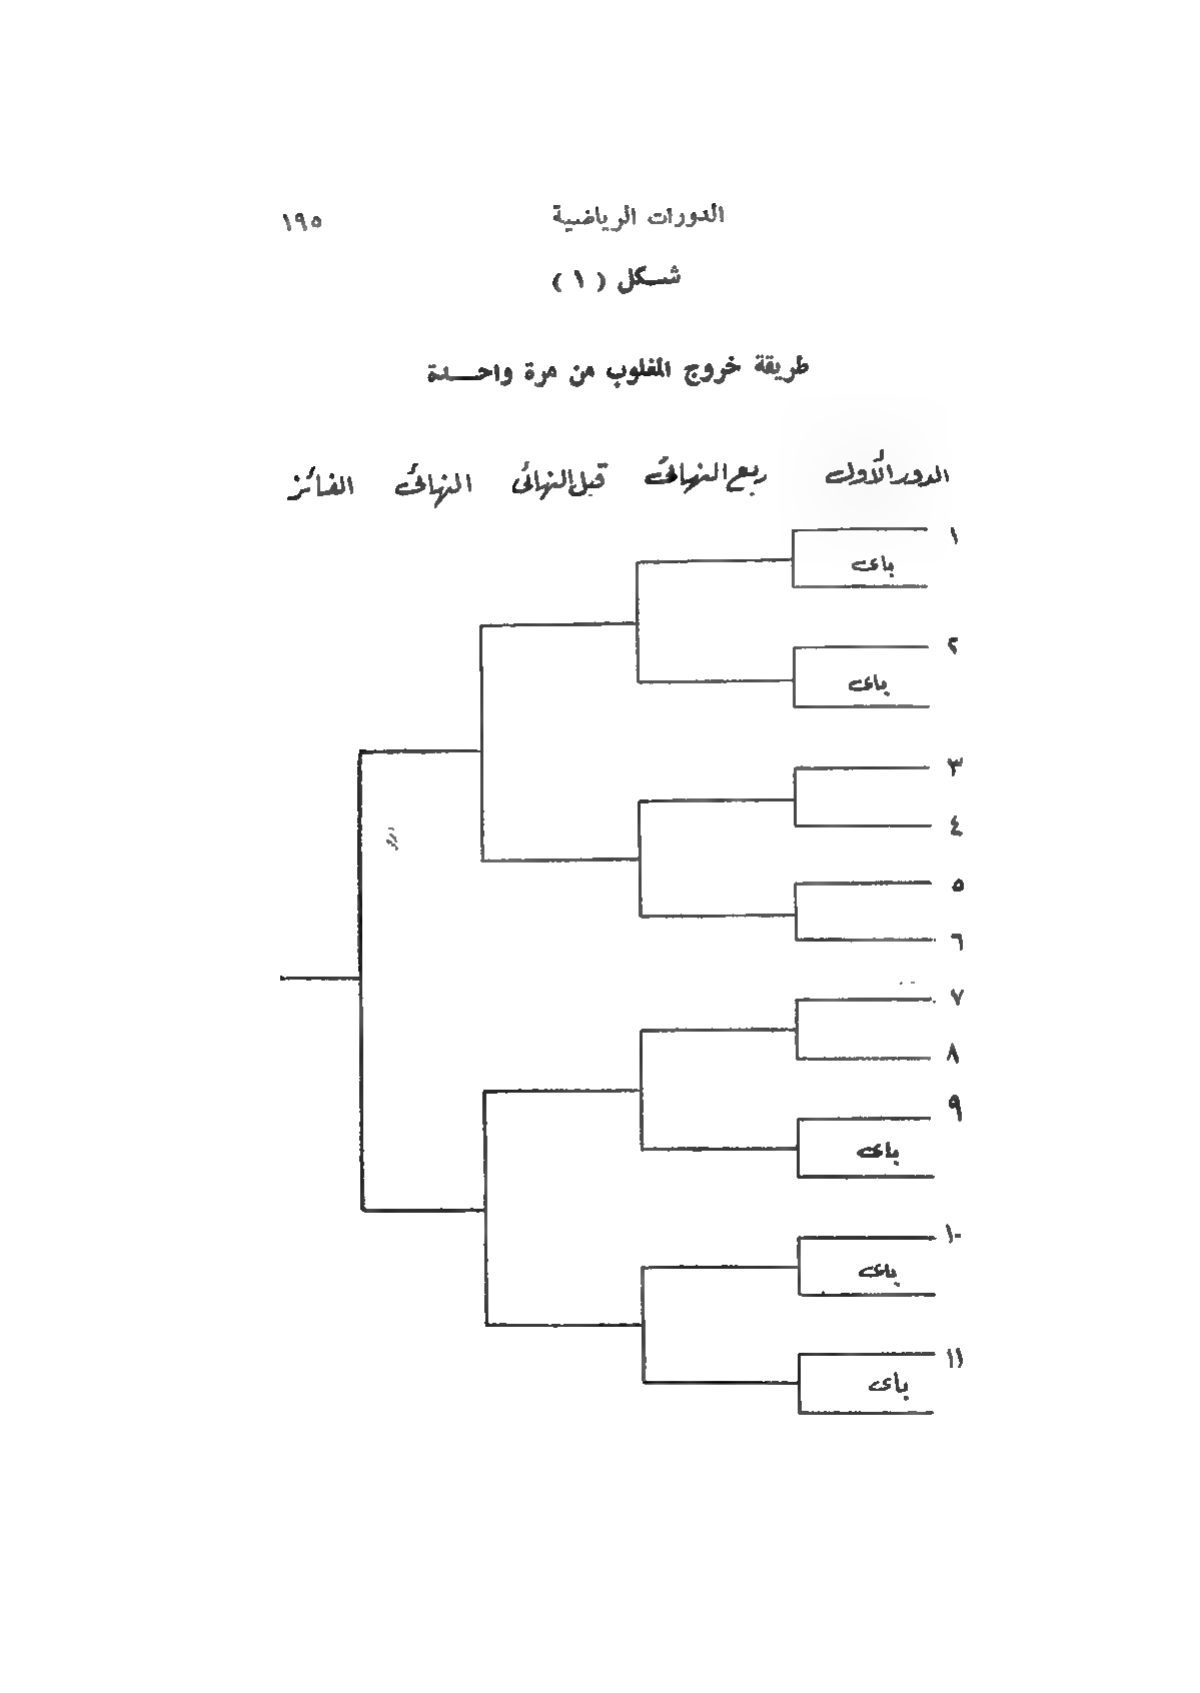 الدورات الرياضية ١٩٥
شكل ( ١ )
طريقة خروج المغلوب من مرة واحدة
الدور الأول ربع النهائى قبل النهائى النهائى الفائز
١
باى
٢
باى
٣
٤
٥
٦
٧
٨
٩
باى
١٠
باى
١١
باى